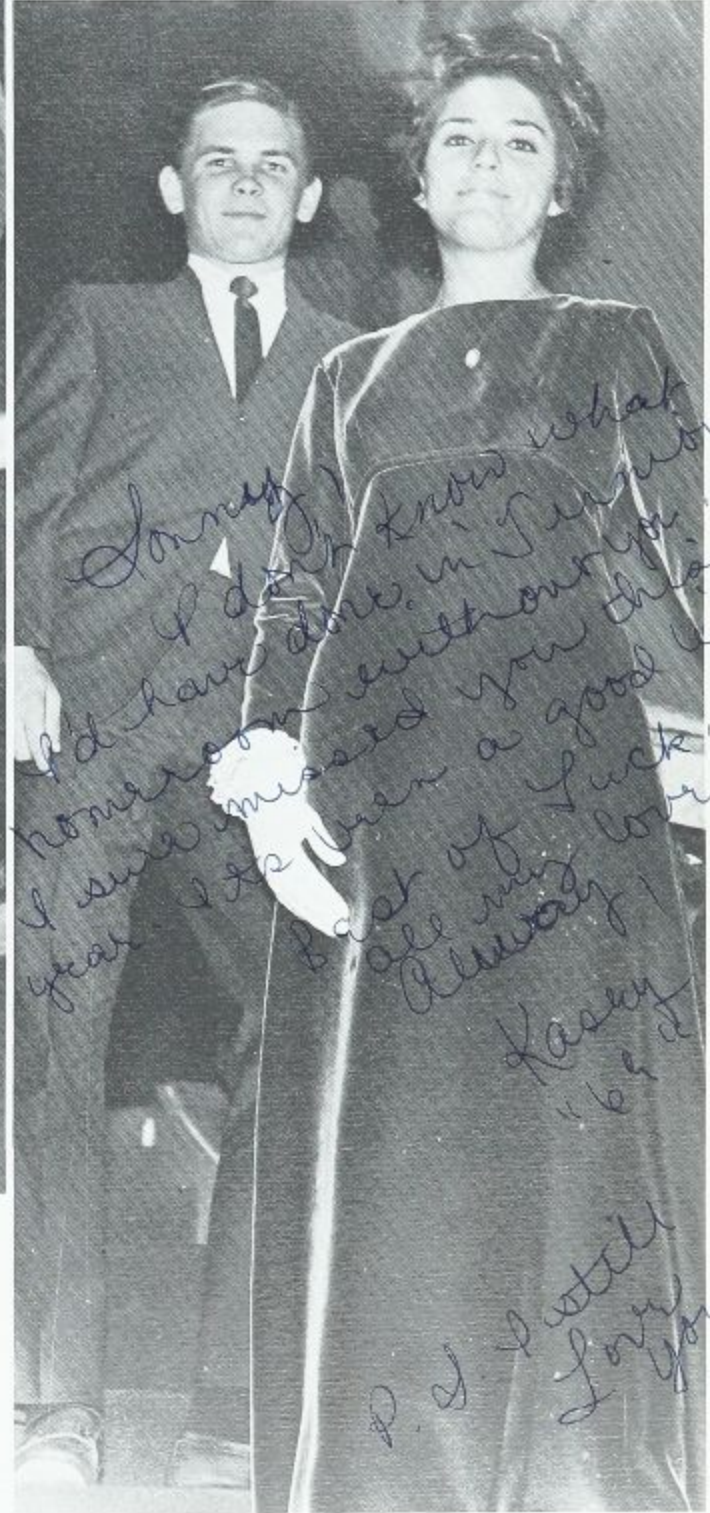 Sonny,
I don't know what
I'd have done in
homeroom without you.
I sure missed you this
year. Its been a good
Best of Luck
all my love
Always,
Kasey
"69"
P.S. I still
Love
you